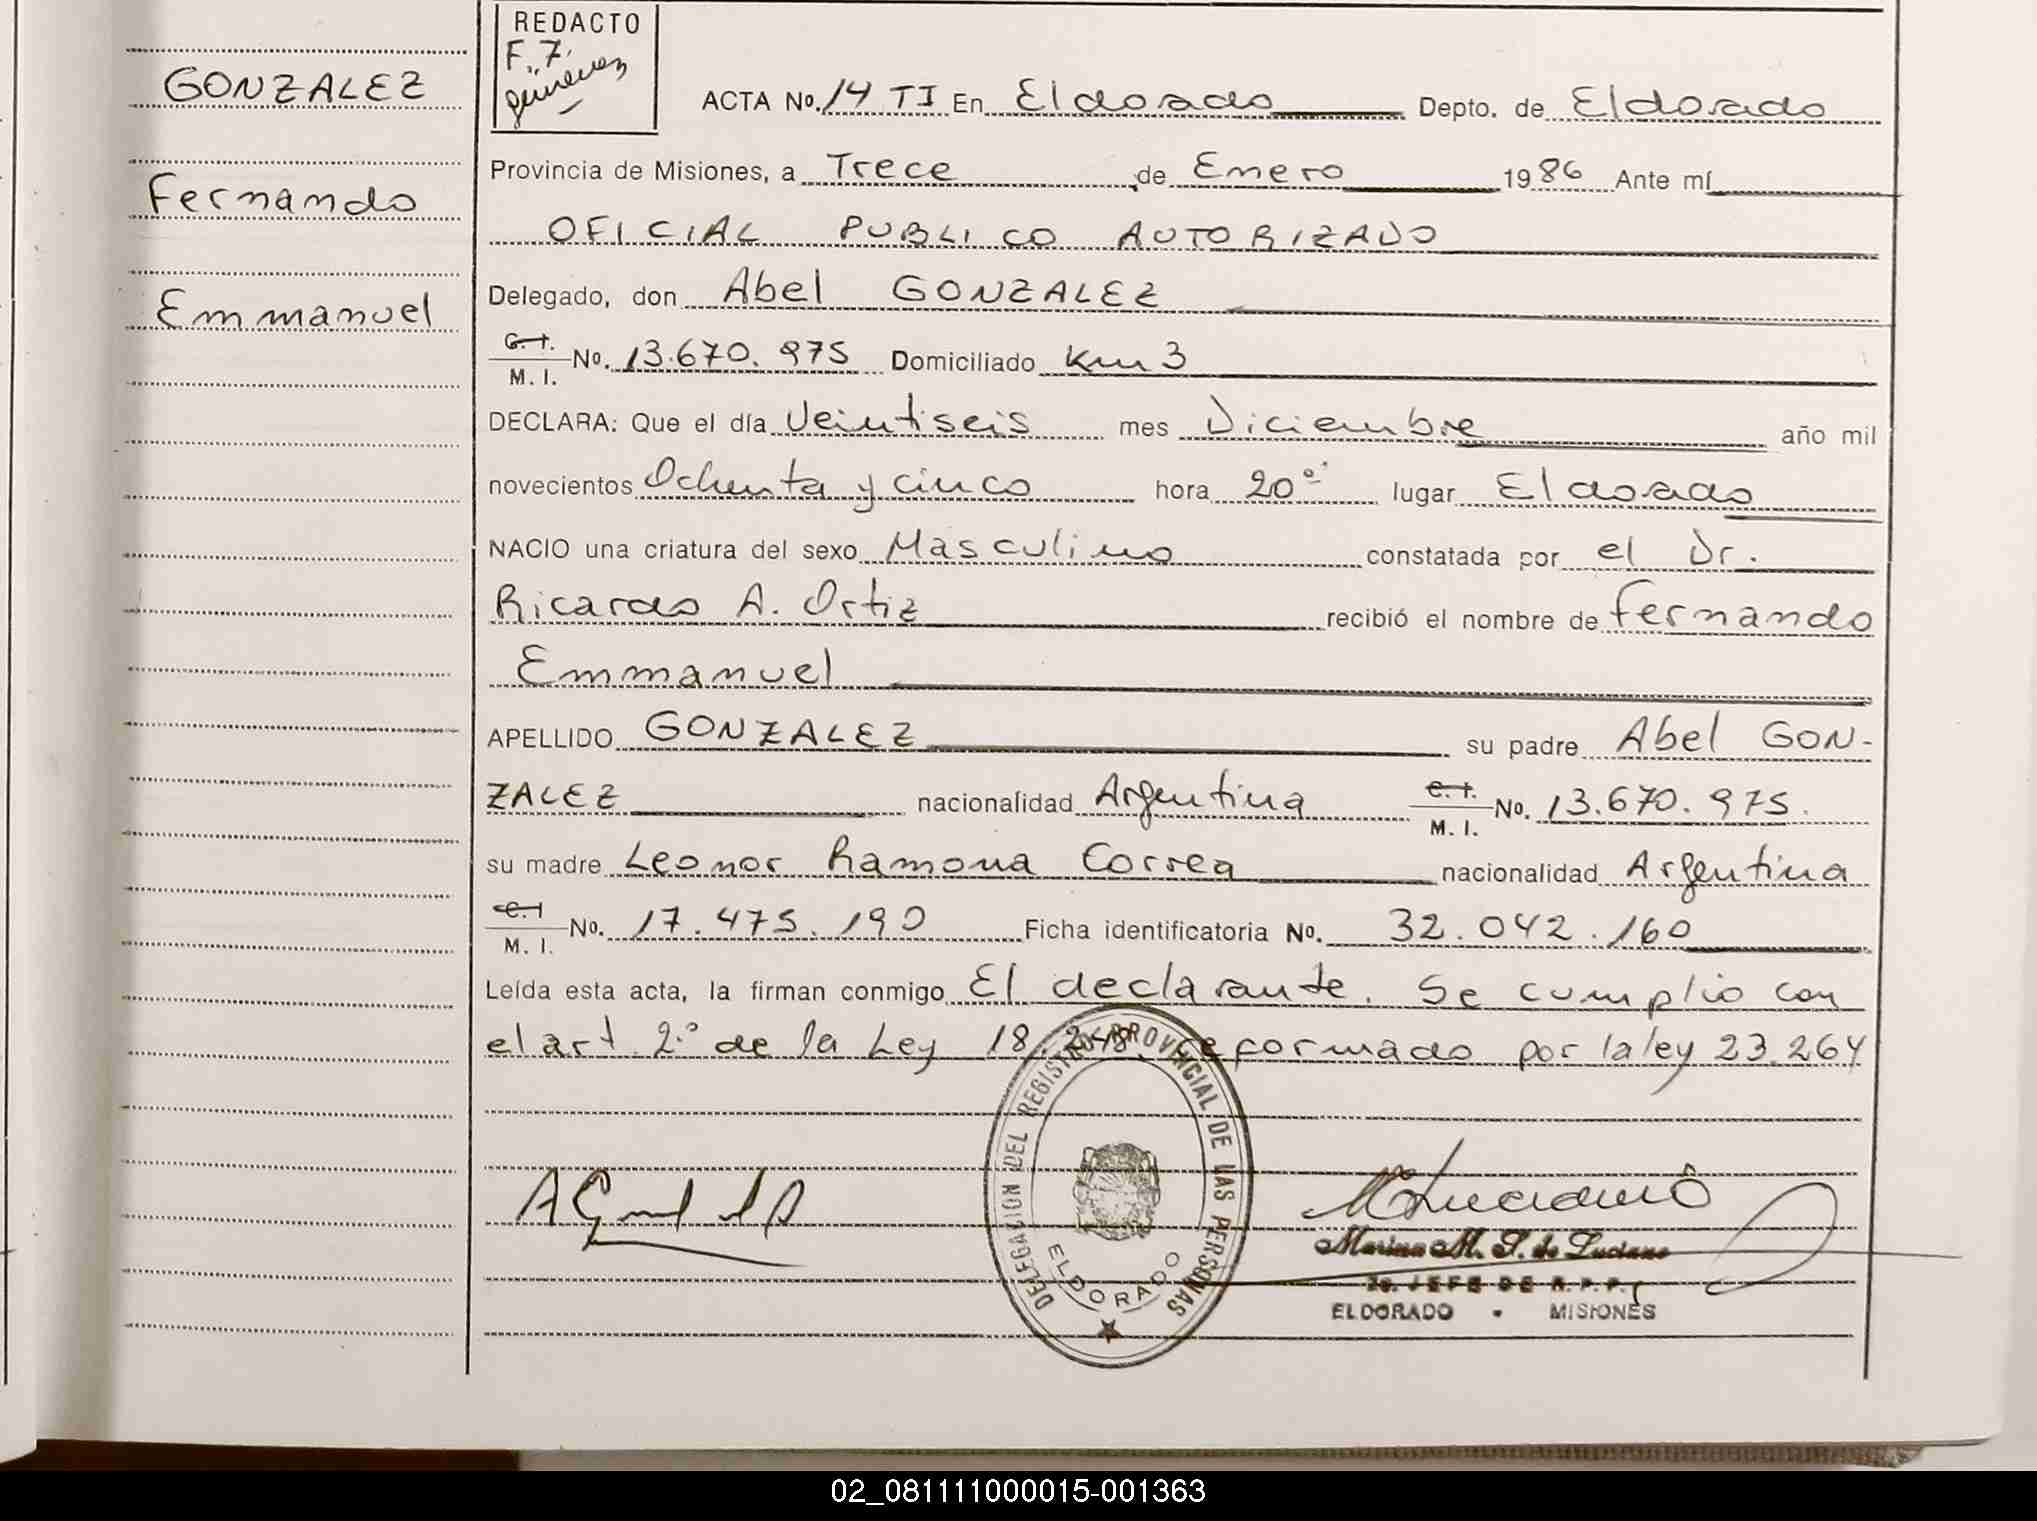 GONZALEZ
Fernando
Emmanuel
REDACTO
F. 7.
ACTA No. 14 TI En Eldorado Depto. de Eldorado
Provincia de Misiones, a Trece de Enero 1986 Ante mí
OFICIAL PUBLICO AUTORIZADO
Delegado, don Abel GONZALEZ
C. I.
M. I. No. 13.670.975 Domiciliado Km 3
DECLARA: Que el día Veintiseis mes Diciembre año mil
novecientos Ochenta y cinco hora 20°° lugar Eldorado
NACIO una criatura del sexo Masculino constatada por el Dr.
Ricardo A. Ortiz recibió el nombre de Fernando
Emmanuel
APELLIDO GONZALEZ su padre Abel GON-
ZALEZ nacionalidad Argentina C. I. M. I. No. 13.670.975.
su madre Leonor Ramona Correa nacionalidad Argentina
C. I. M. I. No. 17.475.190 Ficha identificatoria No. 32.042.160
Leída esta acta, la firman conmigo El declarante. Se cumplio con
el art 2.° de la Ley 18.248. reformado por la ley 23.264
DELEGACION DEL REGISTRO PROVINCIAL DE LAS PERSONAS
ELDORADO
Marina M. S. de Luciano
2o. JEFE DE R. P. P.
ELDORADO - MISIONES
02_081111000015-001363